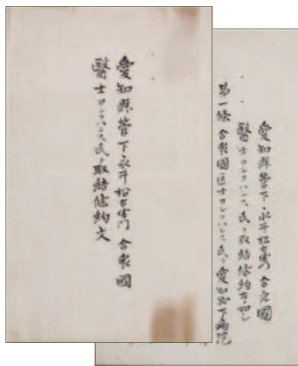 愛知縣管下永井松右衛門 合衆國
醫士ヨングハンス氏ト取結條約文
愛知縣管下永井松右衛門合衆國
醫士ヨングハンス氏ト取結條約
第一條 合衆國醫士ヨングハンス氏 愛知縣下病院